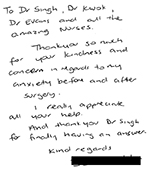 To Dr Singh, Dr Kwok,
Dr Evans and all the
amazing nurses.
Thankyou so much
for your kindness and
concern in regards to my
anxiety before and after
surgery.
I really appreciate
all your help.
And thankyou Dr Singh
for finally having an answer.
Kind regards